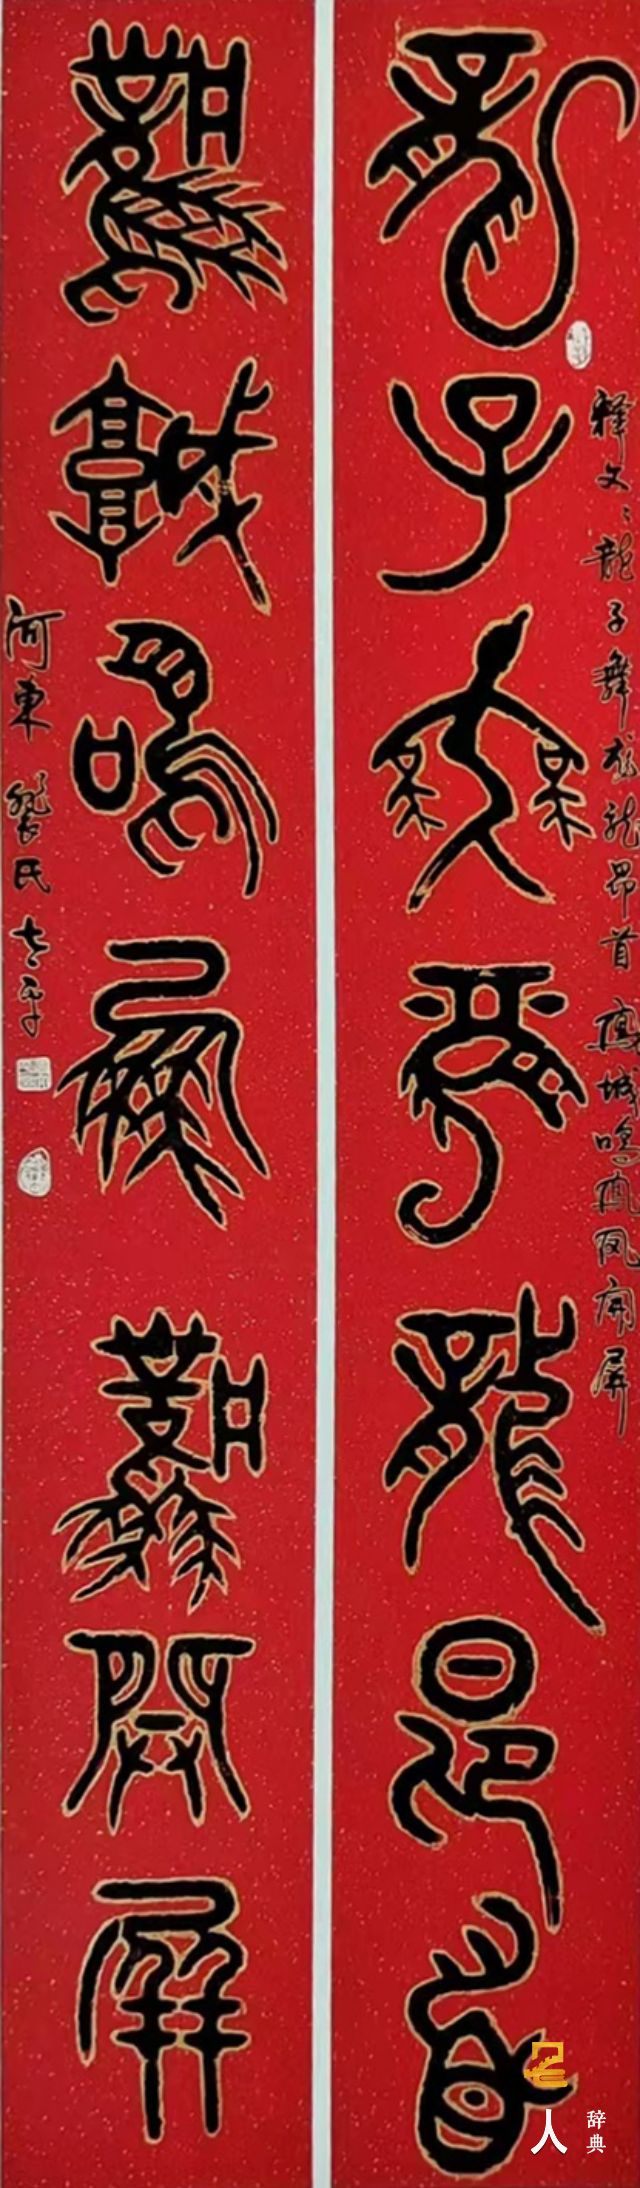 龍子舞龍龍昂首
释文:龍子舞龙龙昂首 鳳城鳴鳳凤開屏
鳳城鳴鳳鳳開屏
河東 氏
人
辞典